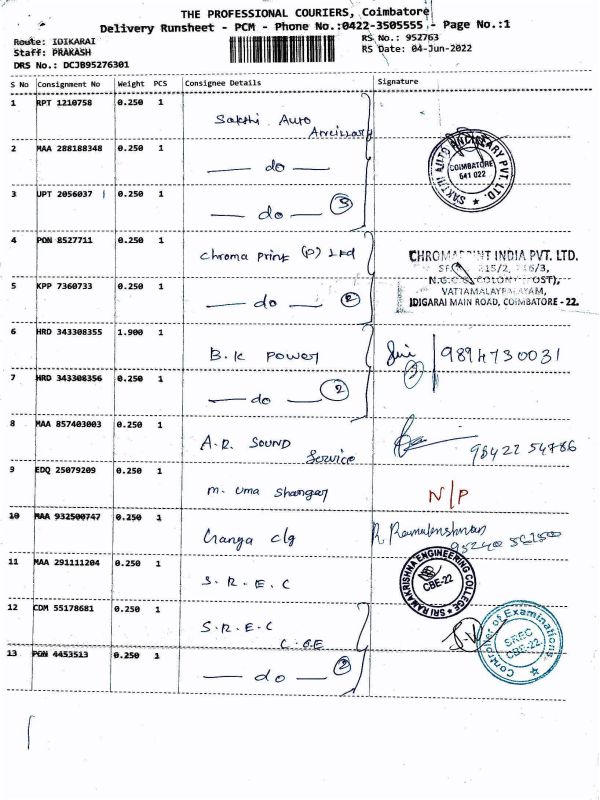 THE PROFESSIONAL COURIERS, Coimbatore
Delivery Runsheet - PCM - Phone No.:0422-3505555 - Page No.:1
Route: IDIKARAI
RS No.: 952763
Staff: PRAKASH
RS Date: 04-Jun-2022
DRS No.: DCJB95276301
S No Consignment No Weight PCS Consignee Details Signature
1 RPT 1210758 0.250 1 Sakthi Auto Ancillary
2 MAA 288188348 0.250 1 — do —
SAKTHI AUTO ANCILLARY PVT. LTD.
COIMBATORE
641 022
3 UPT 2056037 0.250 1 — do — 3
4 PON 8527711 0.250 1 Chroma Print (P) Ltd
CHROMAPRINT INDIA PVT. LTD.
315/2,
COLONY POST),
VATTAMALAYPALAYAM,
IDIGARAI MAIN ROAD, COIMBATORE - 22.
5 KPP 7360733 0.250 1 — do — 2
6 HRD 343308355 1.900 1 B.K Power 9894730031
7 HRD 343308356 0.250 1 — do — 2
8 MAA 857403003 0.250 1 A.R. SOUND Service 98422 54786
9 EDQ 25079209 0.250 1 M. Uma Shangar N/P
10 MAA 932500747 0.250 1 Ganga clg
11 MAA 291111204 0.250 1 S.R.E.C
SRI RAMAKRISHNA ENGINEERING COLLEGE
CBE-22
12 CDM 55178681 0.250 1 S.R.E.C C.O.E
Controller of Examinations
SREC
CBE-22
13 PON 4453513 0.250 1 — do — 2